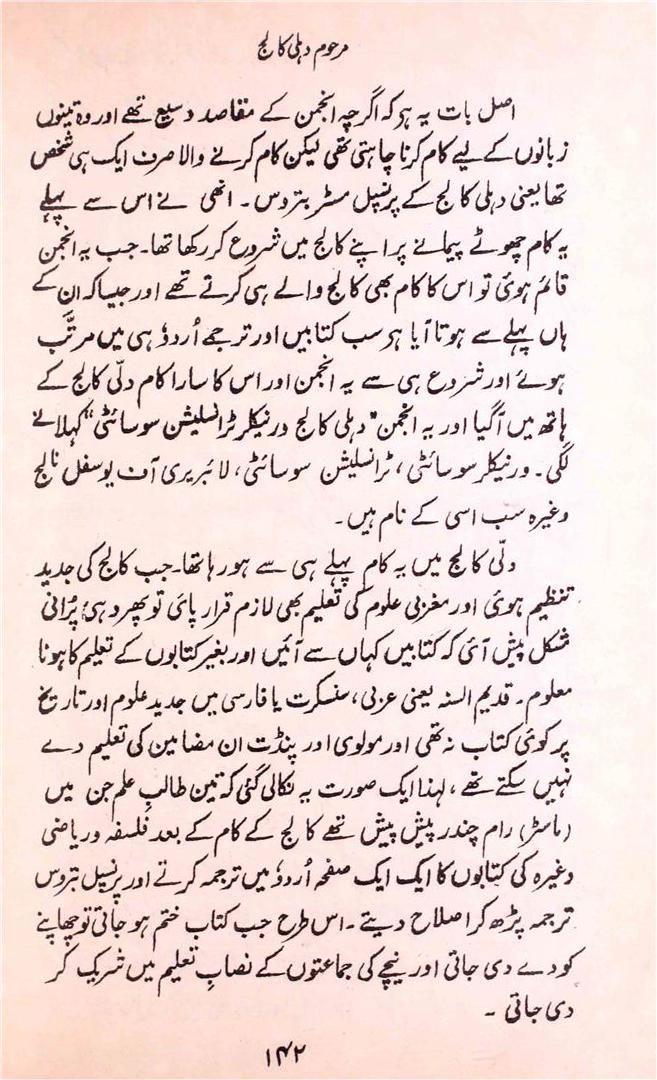 مرحوم دہلی کالج
اصل بات یہ ہر کہ اگرچہ انجمن کے مقاصد وسیع تھے اور وہ تینوں
زبانوں کے لیے کام کرنا چاہتی تھی لیکن کام کرنے والا صرف ایک ہی شخص
تھا یعنی دہلی کالج کے پرنسپل مسٹر بتروس ۔ انھی نے اس سے پہلے
یہ کام چھوٹے پیمانے پر اپنے کالج میں شروع کر رکھا تھا۔ جب یہ انجمن
قائم ہوئی تو اس کا کام بھی کالج والے ہی کرتے تھے اور جیسا کہ ان کے
ہاں پہلے سے ہوتا آیا ہر سب کتابیں اور ترجمے اُردؤ ہی میں مرتّب
ہوئے اور شروع ہی سے یہ انجمن اور اس کا سارا کام دلّی کالج کے
ہاتھ میں آگیا اور یہ انجمن "دہلی کالج ورنیکلر ٹرانسلیشن سوسائٹی" کہلانے
لگی۔ ورنیکلر سوسائٹی، ٹرانسلیشن سوسائٹی، لائبریری آف یوسفل نالج
وغیرہ سب اسی کے نام ہیں۔
دلّی کالج میں یہ کام پہلے ہی سے ہو رہا تھا۔ جب کالج کی جدید
تنظیم ہوئی اور مغربی علوم کی تعلیم بھی لازم قرار پائی تو پھر وہی پُرانی
مشکل پیش آئی کہ کتابیں کہاں سے آئیں اور بغیر کتابوں کے تعلیم کا ہونا
معلوم۔ قدیم السنہ یعنی عربی، سنسکرت یا فارسی میں جدید علوم اور تاریخ
پر کوئی کتاب نہ تھی اور مولوی اور پنڈت ان مضامین کی تعلیم دے
نہیں سکتے تھے، لہذا ایک صورت یہ نکالی گئی کہ تین طالبِ علم جن میں
(ماسٹر) رام چندر پیش پیش تھے کالج کے کام کے بعد فلسفہ و ریاضی
وغیرہ کی کتابوں کا ایک ایک صفحہ اُردؤ میں ترجمہ کرتے اور پرنسپل بتروس
ترجمہ پڑھ کر اصلاح دیتے ۔ اس طرح جب کتاب ختم ہو جاتی تو چھاپنے
کو دے دی جاتی اور نیچے کی جماعتوں کے نصابِ تعلیم میں شریک کر
دی جاتی ۔
۱۴۲